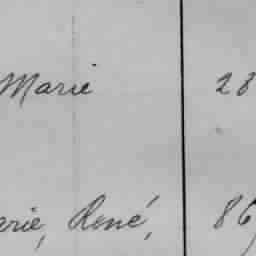 Marie 28
arie, René, 86